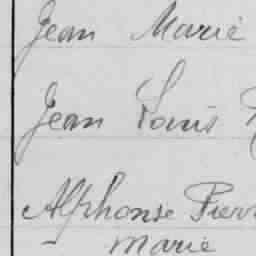 Jean Marie
Jean Louis
Alphonse Pierr
Marie